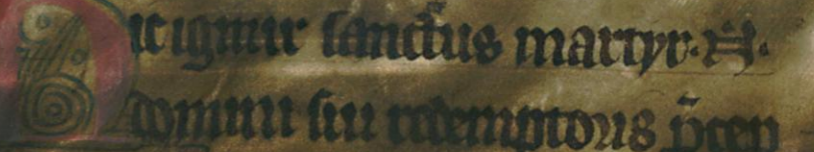 Hic igitur sanctus martyr·N̄·
domini sui redemptoris p̄cep